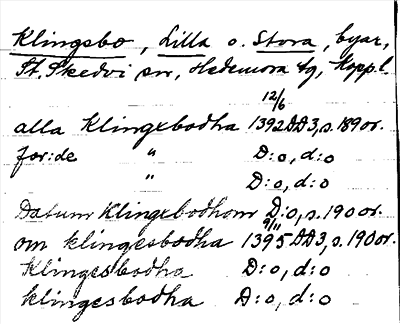 Klingsbo, Lilla o. Stora, byar,
St. Skedvi sn, Hedemora tg, Kopp.l.
12/6
alla Klingxbodha 1392 DD3, s. 189 or.
for:de " D:o, d:o
" D:o, d:o
Datum Klingxbodhom D:o, s. 190 or.
9/11
om klingesbodha 1395 DD3, s. 190 or.
Klingesbodha D:o, d:o
klingesbodha D:o, d:o